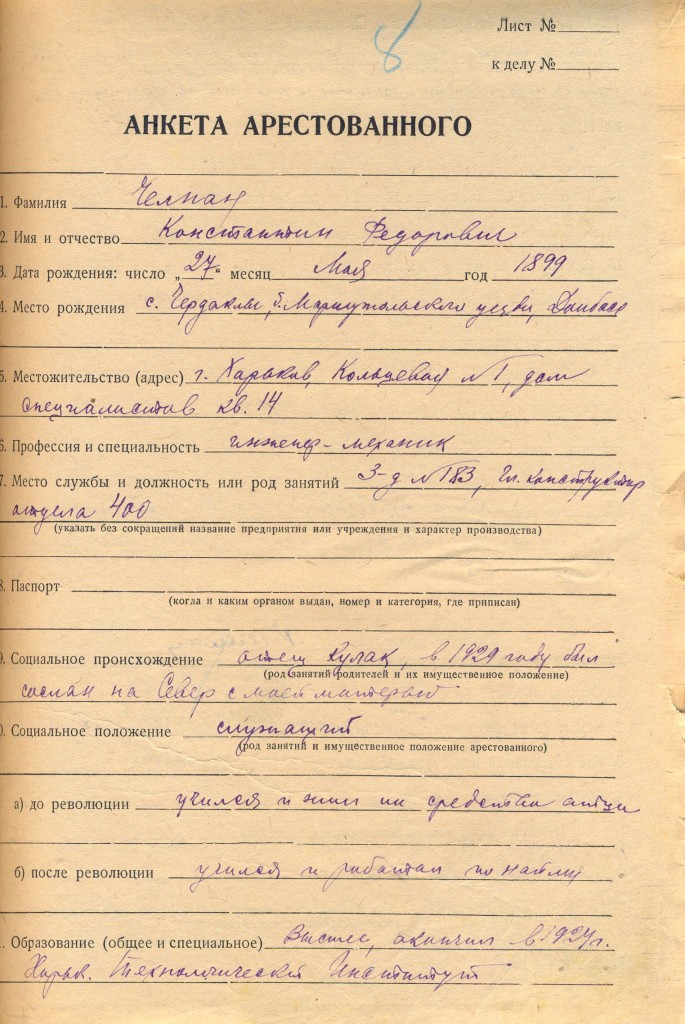 8
Лист №
к делу №
АНКЕТА АРЕСТОВАННОГО
1. Фамилия Челпан
2. Имя и отчество Константин Федорович
3. Дата рождения: число „27“ месяц Мая год 1899
4. Место рождения с. Чердаклы, б. Мариупольского уезда, Донбасс
5. Местожительство (адрес) г. Харьков, Кольцевая №1, дом
специалистов кв. 14
6. Профессия и специальность инженер-механик
7. Место службы и должность или род занятий З-д №183, Гл. конструктор
отдела 400
(указать без сокращений название предприятия или учреждения и характер производства)
8. Паспорт
(когда и каким органом выдан, номер и категория, где приписан)
9. Социальное происхождение отец кулак, в 1929 году был
(род занятий родителей и их имущественное положение)
сослан на Север с моей матерью
0. Социальное положение служащий
(род занятий и имущественное положение арестованного)
а) до революции учился и жил на средства отца
б) после революции учился и работал по найму
. Образование (общее и специальное) Высшее, окончил в 1924 г.
Харьк. Технологический Институт